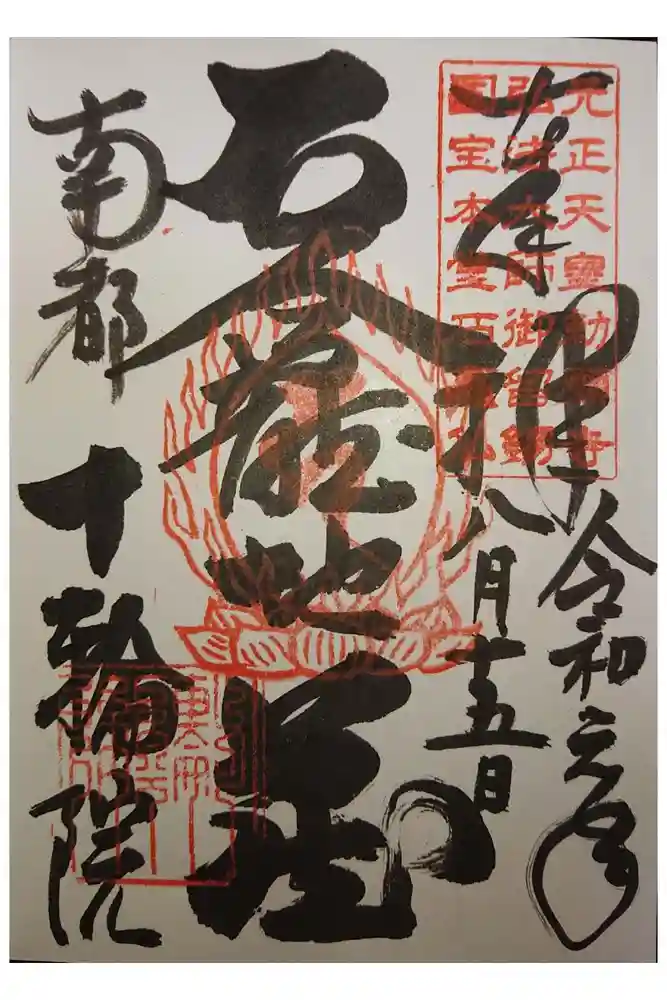 元正天皇勅願寺
弘法大師御留錫
国宝本堂石龕仏
奉拝
令和元年
八月十五日
石龕地蔵
南都 十輪院